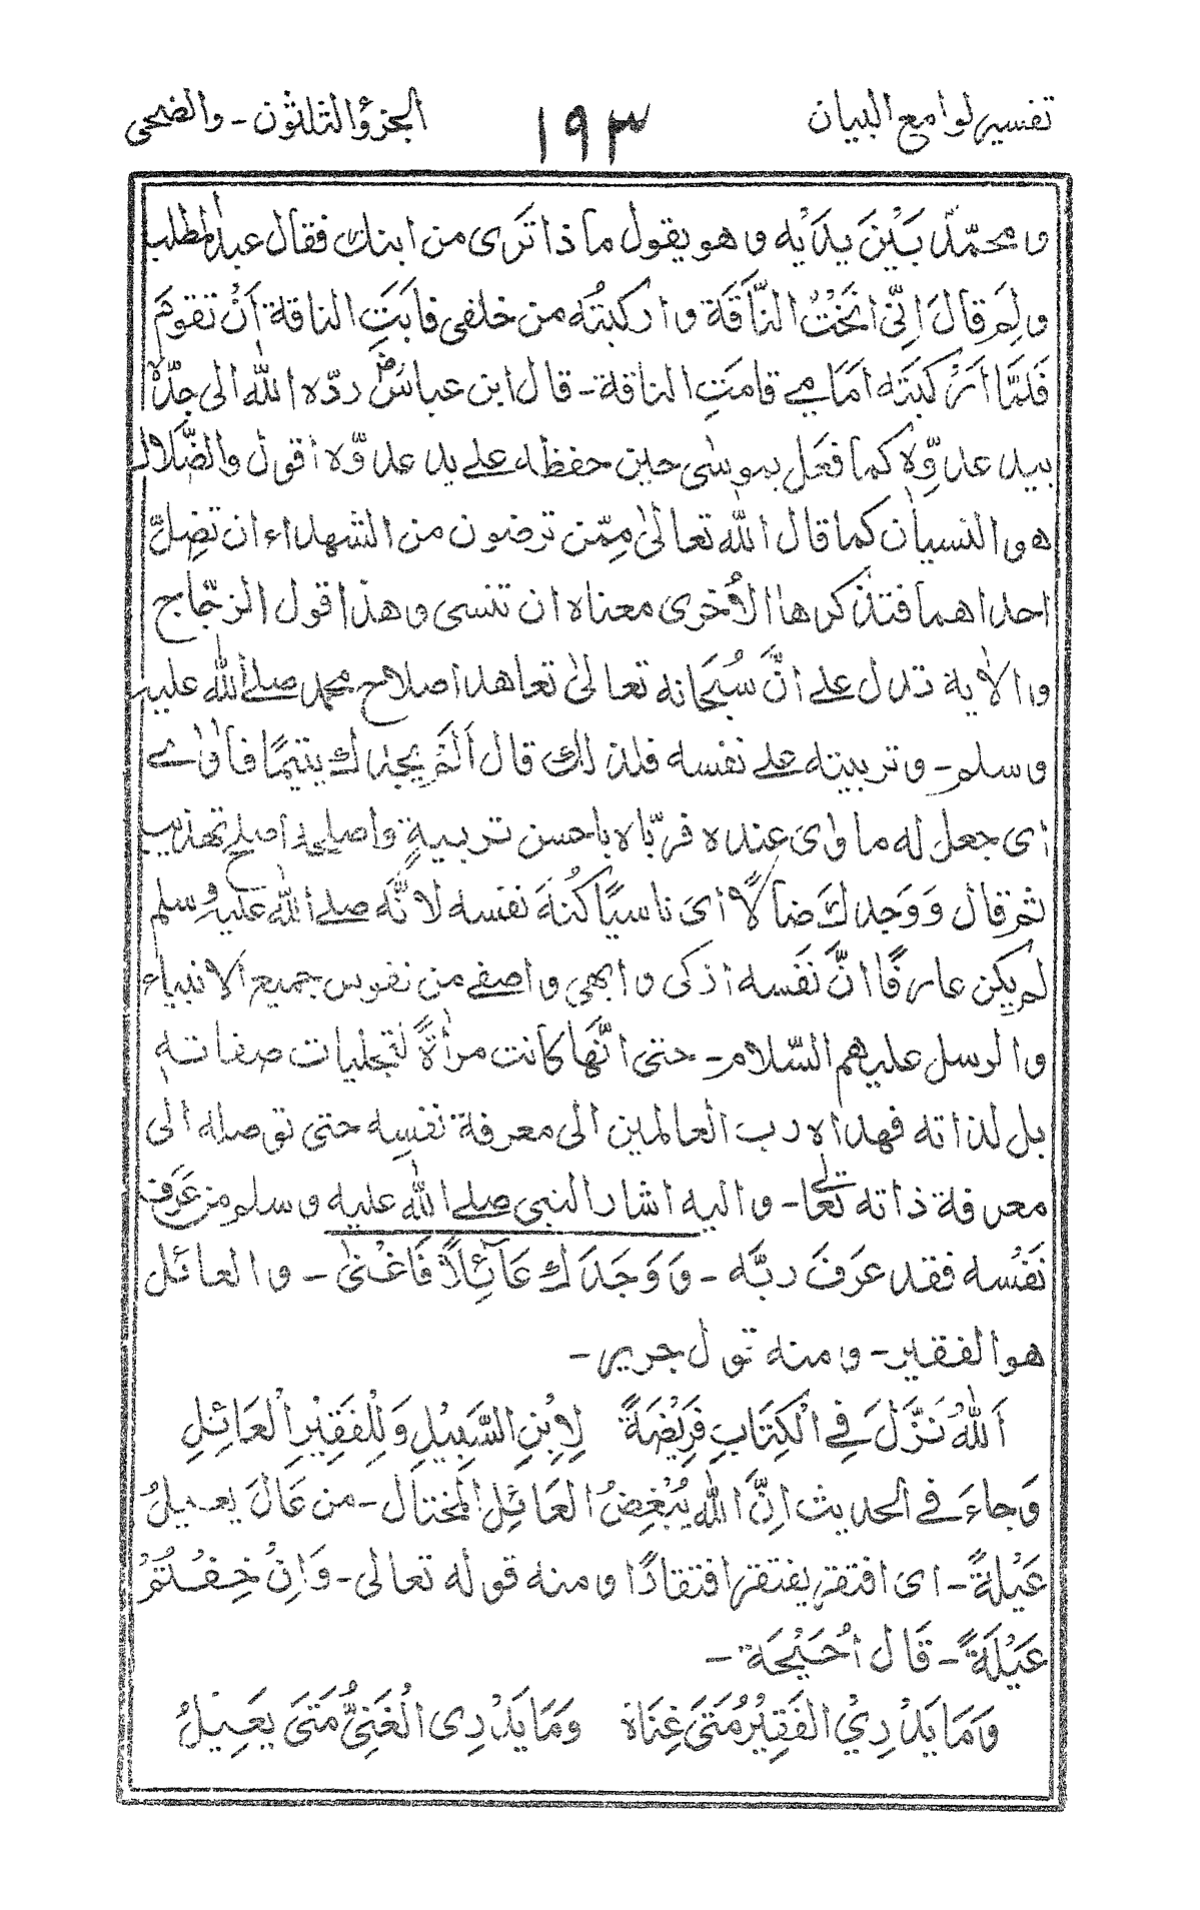 تفسير لوامع البيان
١٩٣
الجزؤ الثلثون - والضحى
و محمّدٌ بَيْنَ يدَيْه و هو يقول ما ذا تَرى من ابنك فقال عبدالمطلب
و لِمَ قالَ اِنّى انَخْتُ النَّاقَة و اركبتُه من خلفى فابَتِ الناقة اَنْ تقومَ
فَلمَّا اَرْكَبتَه اَمَامِے قامَتِ الناقة - قال ابن عباسؓ ردّه الله الى جدِّهٖ
بيد عدوِّه كما فَعَل بموسٰى حين حفظه علے يد عدوّه اقول والضَّلال
هو النسيان كما قال الله تعالىٰ مِمّن ترضون من الشهداء ان تضِلَّ
احداهما فتذكرها الاُخرى معناه ان تنسى و هذا قول الزجّاج
و الاٰية تدل علے انَّ سُبْحَانه تعالىٰ تعاهد اصلاح محمد صلے الله عليه
و سلم - و تربيته علے نفسه فلذلك قال اَلَمْ يجدك يتيمًا فاٰوٰے
اى جعل له ماوٰى عنده فربّاه باحسن تربيةٍ و اصلحه اصلح تهذيب
ثم قال وَ وَجدك ضالًّا اى ناسيًا كُنهَ نفسه لانّه صلے الله عليه وسلم
لم يكن عارفًا انَّ نَفسه ازكى و ابهى و اصفے من نفوس جميع الانبياء
و الرسل عليهم السّلام - حتى انّها كانت مراٰةً لتجليات صفاته
بل لذاته فهداه رب العالمين الى معرفة نفسِه حتى توصله الى
معرفة ذاته تعالى - و اليه اشار النبى صلے الله عليه و سلم من عَرَف
نَفْسه فقد عرَفَ ربَّه - وَ وَجَدَكَ عَآئِلًا فَاَغْنٰى - و العائل
هو الفقير - و منه قول جرير -
اَللهُ نَزَّلَ فِے الْكِتَابِ فَرِيْضَةً لِاِبْنِ السَّبِيْلِ وَ لِلْفَقِيْرِ الْعَائِلِ
وَ جاءَ فے الحديث اِنَّ الله يُبْغِضُ العَائِل المختال - من عَالَ يعيلُ
عَيْلةً - اى افتقر يفتقر افتقادًا و منه قوله تعالى - وَ اِنْ خِفْتُمْ
عَيْلَةً - قَال اُحَيْحَة -
وَ مَا يَدْرِيْ الفَقِيْرُ مَتَى غِنَاهُ وَ مَا يَدْرِى الْغَنِىُّ مَتَى يَعِيْلُ